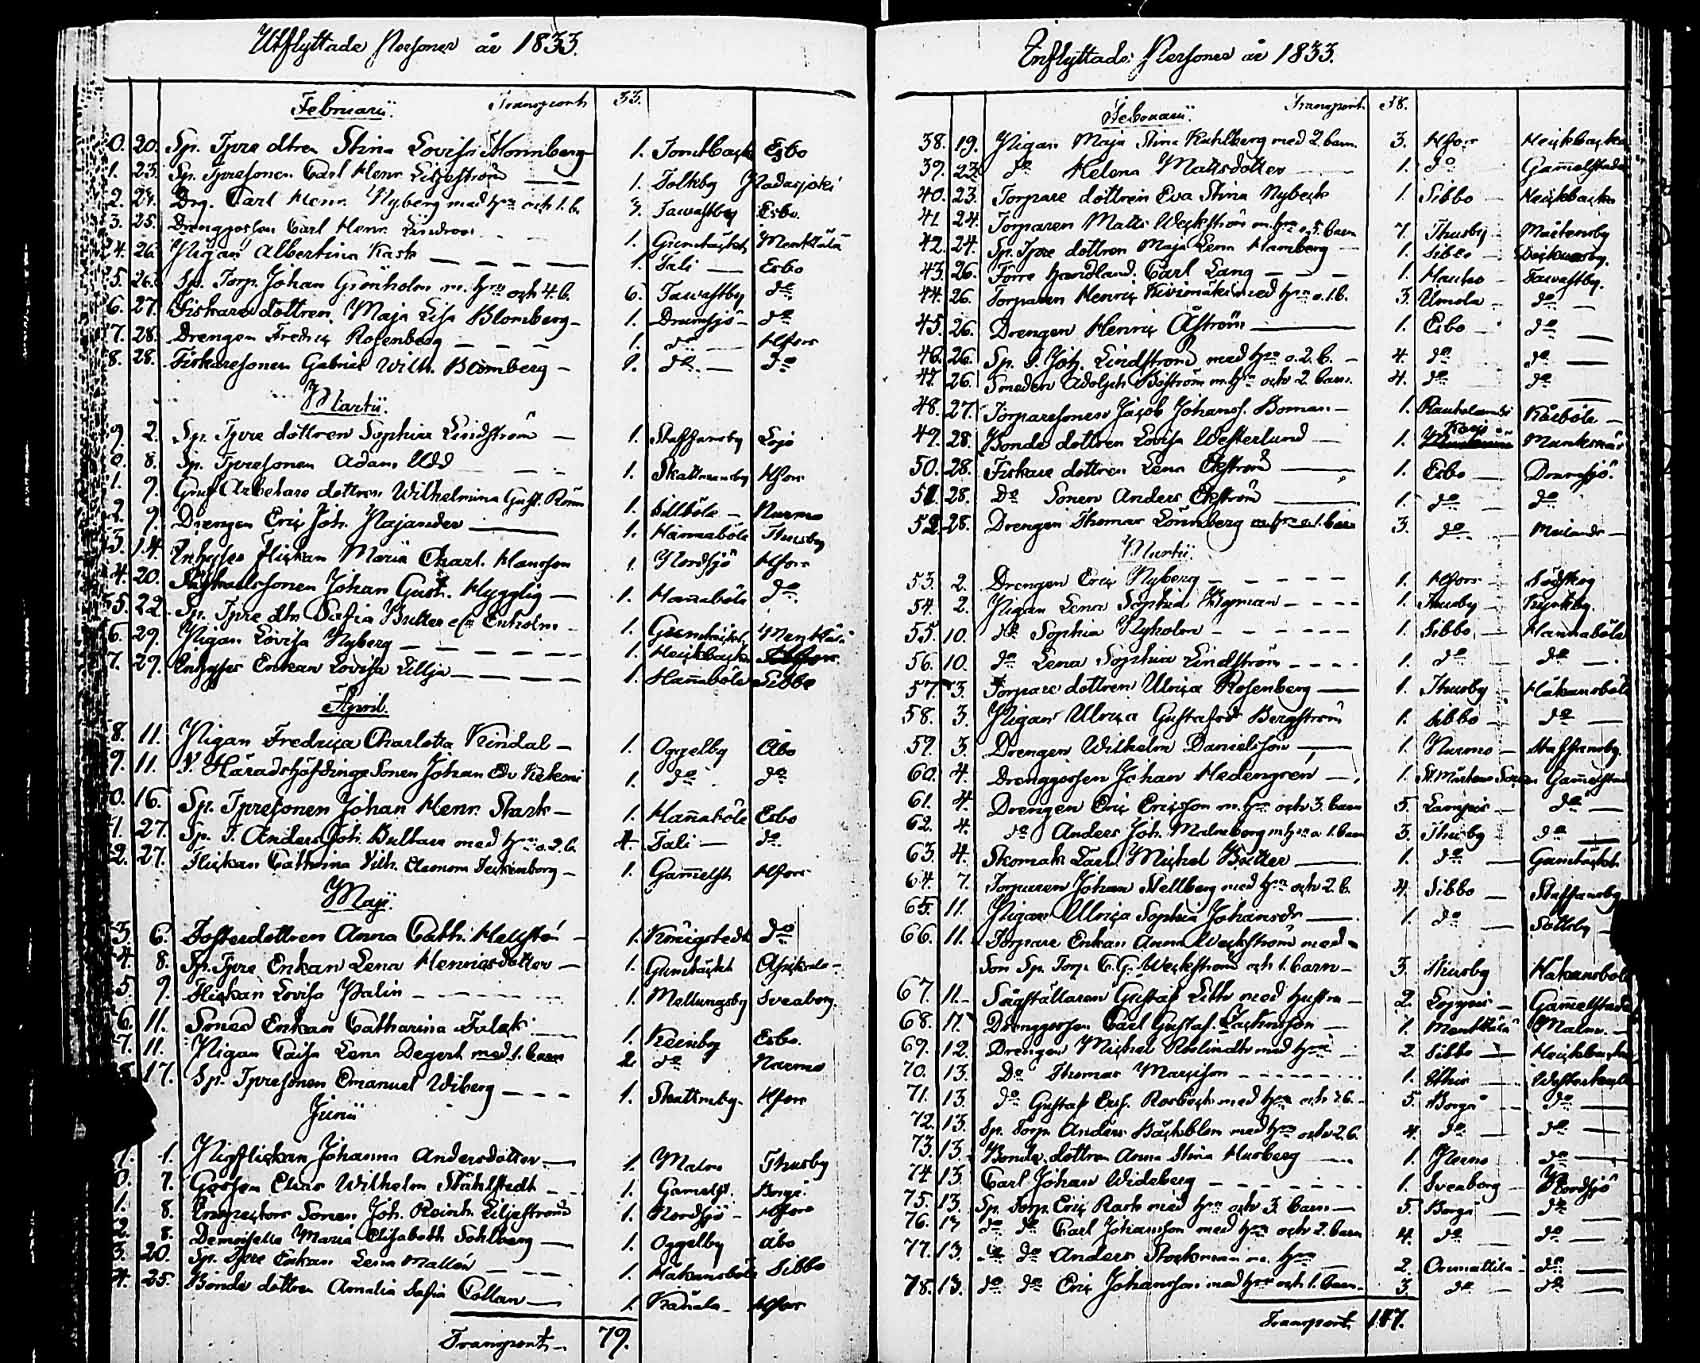 Utflyttade Personer år 1833.
Februarii. Transport 33.
0. 20. Sp. Tpre dtren Stina Lovisa Mörnberg 1. Tomtbacka Esbo
1. 23. Sp. Tpresonen Carl Henr. Liljeström 1. Tolkby Padasjoki
2. 24. Drg. Carl Henr. Nyberg med hru och 1. b. 3. Tawastby Esbo.
3. 25. Drenggossen Carl Henr. Lindroos 1. Gumtäckt Mentsälä
24. 26. Pigan Albertina Kask 1. Tali Esbo
25. 26. Sp. Torp. Johan Grönholm m. hru och 4. b. 6. Tawastby do
6. 27. Fiskare dottren Maja Lisa Blomberg 1. Drumsjö do
7. 28. Drengen Fredric Rosenberg 1. do Hfors
8. 28. Fiskaresonen Gabriel Wilh. Blomberg 1. do do
Martii.
9. 2. Sp. Tpre dottren Sophia Lindström 1. Staffansby Lojo
0. 8. Sp. Tpresonen Adam Udd 1. Skattmansby Hfors
1. 9. Gruf Arbetare dottren Wilhelmina Gust. Rönn 1. Sillböle Nurmo
2. 9. Drengen Eric Joh. Pajander 1. Hannaböle Thusby
3. 14. Inhyses Flickan Maria Charl. Hansson 1. Nordsjö Hfors
4. 20. Johan Gust. Hygglig 1. Hannaböle do
35. 22. Sp. Tpre dtr Safia Butter el. Enholm 1. Gumtäckt Mentsälä
6. 29. Pigan Lovisa Nyberg 1. Heickbacka Hfors
7. 29. Inhyses Enkan Lovisa Lillja 1. Hannaböle Sibbo
April.
8. 11. Pigan Fredrica Charlotta Kindal 1. Oggelby Åbo
9. 11. V. Häradshöfdinge Sonen Johan Edv. 1. do do
0. 16. Sp. Tpresonen Johan Henr. Stark 1. Hannaböle Esbo
1. 27. Sp. T. Anders Joh. Bultare med hru o. 2. b. 4. Tali do
2. 27. Flickan Cathrina Vilh. Eleonora 1. Gammelst. Hfors
Maji.
3. 6. Fosterdottren Anna Cath. Hellstén 1. Königstedt do
4. 8. Sp. Tpre Enkan Lena Henricsdotter 1. Gumtäckt
5. 9. Flickan Lovisa Palin 1. Mellungsby Sveaborg.
6. 11. Smed Enkan Catharina Falck 1. Reinby Esbo.
7. 11. Pigan Caisa Lena Degert med 1. barn 2. do Nurmo
17. Sp. Tpresonen Emanuel Wiberg 1. Skattmby. Hfors
Junii
1. Pigflickan Johanna Andersdotter 1. Malm Thusby
0. 7. Gossen Elias Wilhelm Ståhlstedt 1. Gamelst. Borgå
1. 8. Inspecktors Sonen Joh. Reinh. Liljestrand 1. Nordsjö Hfors
2. 8. Demoiselle Maria Elisabeth Sohlberg 1. Oggelby Åbo
3. 20. Sp. Tpre Enkan Lena Mallén 1. Håkansböle Sibbo
4. 25. Bonde dottren Amalia Safia Collan 1. Kånala Hfors
Transport 79.
Inflyttade Personer år 1833.
Februarii. Transport 58.
38. 19. Pigan Maja Stina Kuhlberg med 2. barn 3. Hfors Heickbacka
39. 23. do Helena Mattsdotter 1. do Gammelstaden
40. 23. Torpare dottren Eva Stina Nybeck 1. Sibbo Heickbacka
41 24. Torparen Matts Weckström m. hru o. 5. barn 7. Thusby Mårtensby
42. 24. Sp. Tpre dottren Maja Lena Hamberg 1. Sibbo Dickursby.
43. 26. Förre Handland. Carl Lang 1. Hauho Tawastby.
44. 26. Torparen Henric Kivimäki med hru o. 1. b. 3. Umola do
45. 26. Drengen Henric Åström 1. Esbo do
46. 26. Sp. T. Joh. Lindström med hru o. 2. b. 4. do do
47. 26. Smeden Adolph Boström m. hru och 2. barn. 4. do do
48. 27. Torparesonen Jacob Johans. Boman 1. Kårböle
49. 28. Bonde dottren Lovisa Westerlund 1. Munksnäs
50. 28. Fiskare dottren Lena Ekström 1. Esbo Drumsjö
51. 28. Do Sonen Anders Ekström 1. do do
52. 28. Drengen Thomas Lönnberg m. hru o. 1. barn 3. do Meilands
Martii
53. 2. Drengen Eric Nyberg 1. Hfors Södskog
54. 2. Pigan Lena Sophia Wigman 1. Thusby
55. 10. do Sophia Nyholm 1. Sibbo Hannaböle
56. 10. do Lena Sophia Lindström 1. do do
57. 3. Torpare dottren Ulrica Rosenberg 1. Thusby Håkansböle
58. 3. Pigan Ulrica Gustafsdr Bergström 1. Sibbo do
59. 3. Drengen Wilhelm Danielsson 1. Nurmo Staffansby.
60. 4. Drenggossen Johan Hedengrén 1. St. Mårtens Gammelstad
61. 4. Drengen Eric Ericsson m. hru och 3. barn 5. Lampis do
62. 4. do Anders Joh. Malmberg m. hru o. 1. barn 3. Thusby do
63. 4. Skomak. Carl Michel Bötter 1. do Gumtäckt
64. 7. Torparen Johan Stellberg med hru och 2. b. 4. Sibbo Staffansby
65. 11. Pigan Ulrica Sophia Johansdr 1. do Sottby
66. 11. Torpare Enkan Anna Weckström med
Son Sp. Torp. C. G. Weckström och 1. barn 3. Thusby Håkansböle
67. 11. Sågställaren Gustaf Lith med hustru 2. Loppis Gammelstad
68. 11. Drenggossen Carl Gustaf 1. Mentsälä Malm
69. 12. Drengen Michel Roslindh med hru 2. Sibbo Heickbacka
70. 13. Do Thomas 1. Westerkulla
71. 13. do Gustaf Eric. Rosbeck med hru och 5. Borgå do
72. 13. Sp. Torp. Anders Bäckblom med hru och 2. b. 4. do do
73. 13. Bonde dottren Anna Stina Husberg 1. Perno do
74 13. Carl Johan Wideberg 1. Sveaborg Nordsjö
75. 13. Sp. Torp. Eric Rask med hru och 3. barn 5. Borgå do
76. 13 do do Carl Johansson med hru och 2. barn 4. do do
77. 13. do do Anders Stockman m. hru 2. Orimattila do
78. 13. do do Eric Johansson med hru och 1. barn 3. do do
Transport 147.